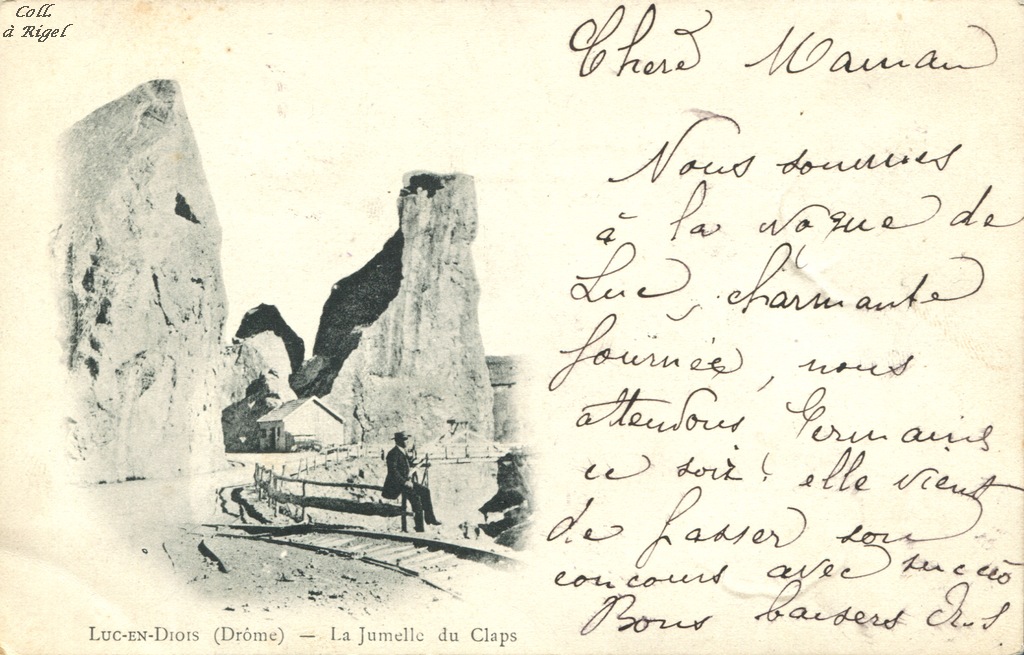 Coll.
à Rigel
Cheré Maman
Nous sommes
à la vogue de
Luc, charmante
journée, nous
attendons Germaine
ce soir ! elle vient
de passer son
concours avec succès
Bons baisers
LUC-EN-DIOIS (DRÔME) — LA JUMELLE DU CLAPS